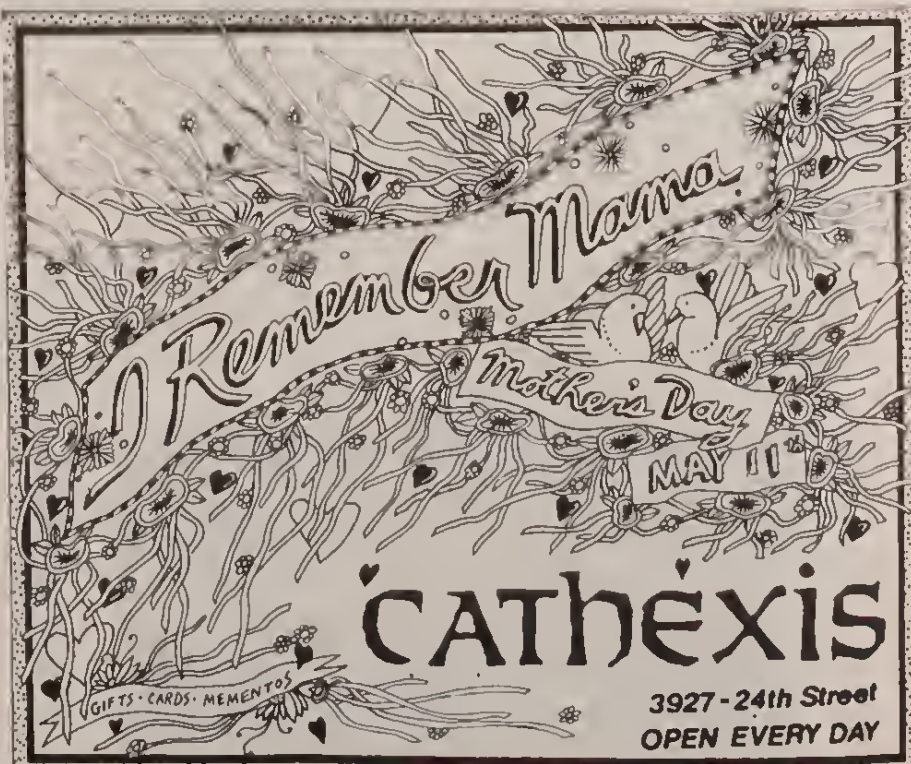 I Remember Mama
Mother's Day
MAY 11th
CATHEXIS
GIFTS · CARDS · MEMENTOS
3927 - 24th Street
OPEN EVERY DAY